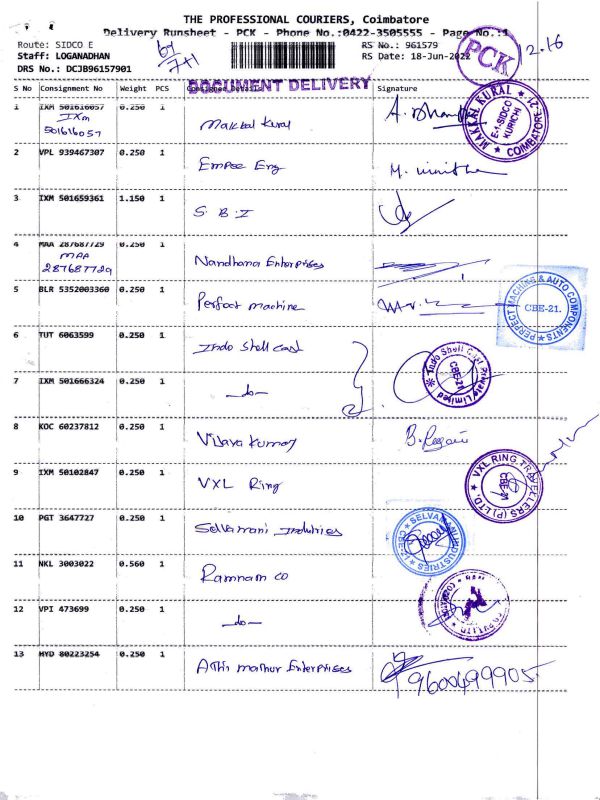 THE PROFESSIONAL COURIERS, Coimbatore
Delivery Runsheet - PCK - Phone No.:0422-3505555 - Page No.:1
Route: SIDCO E
RS No.: 961579
Staff: LOGANADHAN
RS Date: 18-Jun-2022
DRS No.: DCJB96157901
7+1
PCK
12.16
DOCUMENT DELIVERY
S No Consignment No Weight PCS Consignee Details Signature
1 IXM 501616057 0.250 1 Makkal Kural
IXM
501616057
MAKKAL KURAL
E-1-SIDCO
KURICHI
COIMBATORE-21
2 VPL 939467307 0.250 1 Empee Eng
3 IXM 501659361 1.150 1 S.B.I
4 MAA 287687729 0.250 1 Nandhana Enterprises
MAA
287687729
5 BLR 5352003360 0.250 1 Perfect machine
PERFECT MACHINE & AUTO COMPONENTS
CBE-21.
6 TUT 6063599 0.250 1 Indo Shell Cast
Indo Shell Cast Private Limited
CBE-21
7 IXM 501666324 0.250 1 -do-
8 KOC 60237812 0.250 1 Vijaya Kumar
9 IXM 50102847 0.250 1 VXL Ring
VXL RING TRAVELLERS (P) LTD.
CBE-21
10 PGT 3647727 0.250 1 Selvamani Industries
SELVAMANI INDUSTRIES
CBE-21
11 NKL 3003022 0.560 1 Ramnam co
12 VPI 473699 0.250 1 -do-
13 HYD 80223254 0.250 1 Athi mathur Enterprises
9600499905